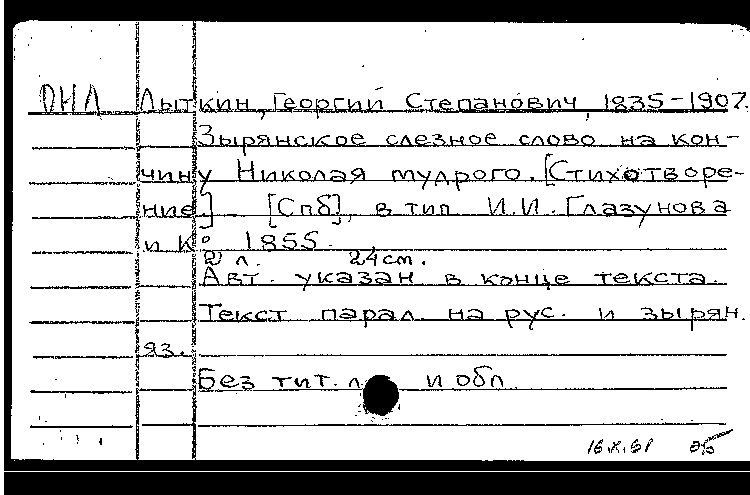 ОНЛ Лыткин, Георгий Степанович, 1835-1907.
Зырянское слезное слово на кон-
чину Николая мудрого. [Стихотворе-
ние.] [Спб], в тип. И.И. Глазунова
и К° 1855.
2 л. 24 см.
Авт. указан в конце текста.
Текст парал. на рус. и зырян.
яз.
Без тит. л. и обл.
16.X.61